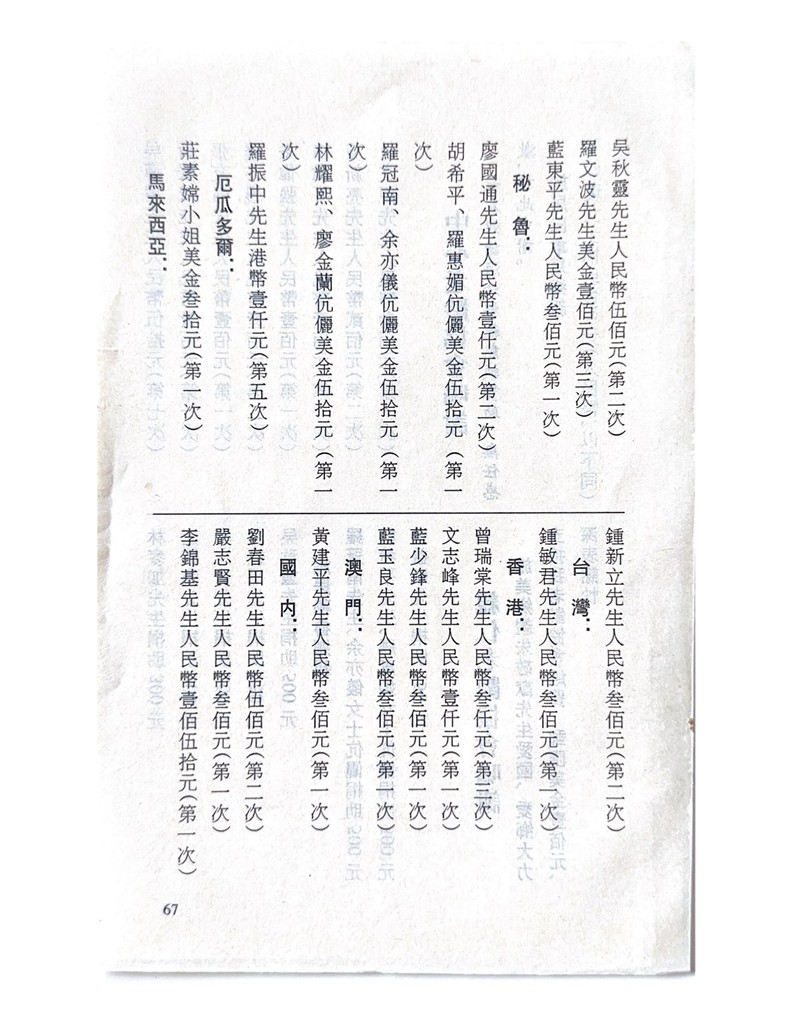 吳秋靈先生人民幣伍佰元(第二次)
羅文波先生美金壹佰元(第三次)
藍東平先生人民幣叁佰元(第一次)
秘魯：
廖國通先生人民幣壹仟元(第二次)
胡希平、羅惠媚伉儷美金伍拾元(第一
次)
羅冠南、余亦儀伉儷美金伍拾元(第一
次)
林耀熙、廖金蘭伉儷美金伍拾元(第一
次)
羅振中先生港幣壹仟元(第五次)
厄瓜多爾：
莊素嫦小姐美金叁拾元(第一次)
馬來西亞：
鍾新立先生人民幣叁佰元(第二次)
台灣：
鍾敏君先生人民幣叁佰元(第一次)
香港：
曾瑞棠先生人民幣叁仟元(第三次)
文志峰先生人民幣壹仟元(第一次)
藍少鋒先生人民幣叁佰元(第一次)
藍玉良先生人民幣叁佰元(第一次)
澳門：
黃建平先生人民幣叁佰元(第一次)
國内：
劉春田先生人民幣伍佰元(第二次)
嚴志賢先生人民幣叁佰元(第一次)
李錦基先生人民幣壹佰伍拾元(第一次)
67